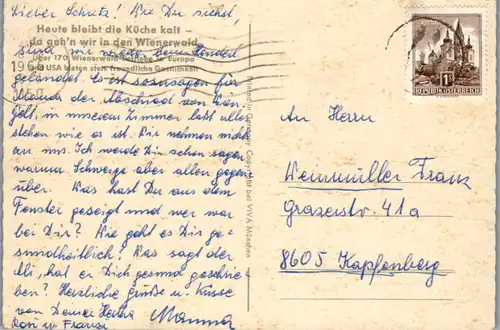 Lieber Schatz! Wie Du siehst,
Heute bleibt die Küche kalt –
da geh'n wir in den Wienerwald
sind wir wieder beim
Über 170 Wienerwald-Betriebe in Europa
USA bieten stets freundliche Gastlichkeit
gelandet. Es ist sozusagen für
Mama der Abschied von Wien.
Geht, in unserem Zimmer laßt alles
stehen wie es ist. Wir nehmen nichts
an uns. Ich werde Dir schon sagen
warum. Schweige aber allen gegen-
über. Was hast Du aus dem
Fenster gezeigt und wer war
bei Dir? Wie geht es Dir ge-
sundheitlich? Was sagt der
hat er Dich gesund geschrie-
ben? Herzliche Grüße u. Küsse
von Deiner Mamma
Printed in Germany Copyright bei VIVA München
1S
REPUBLIK ÖSTERREICH
An Herrn
Weinmüller Franz
Grazerstr. 41a
8605 Kapfenberg